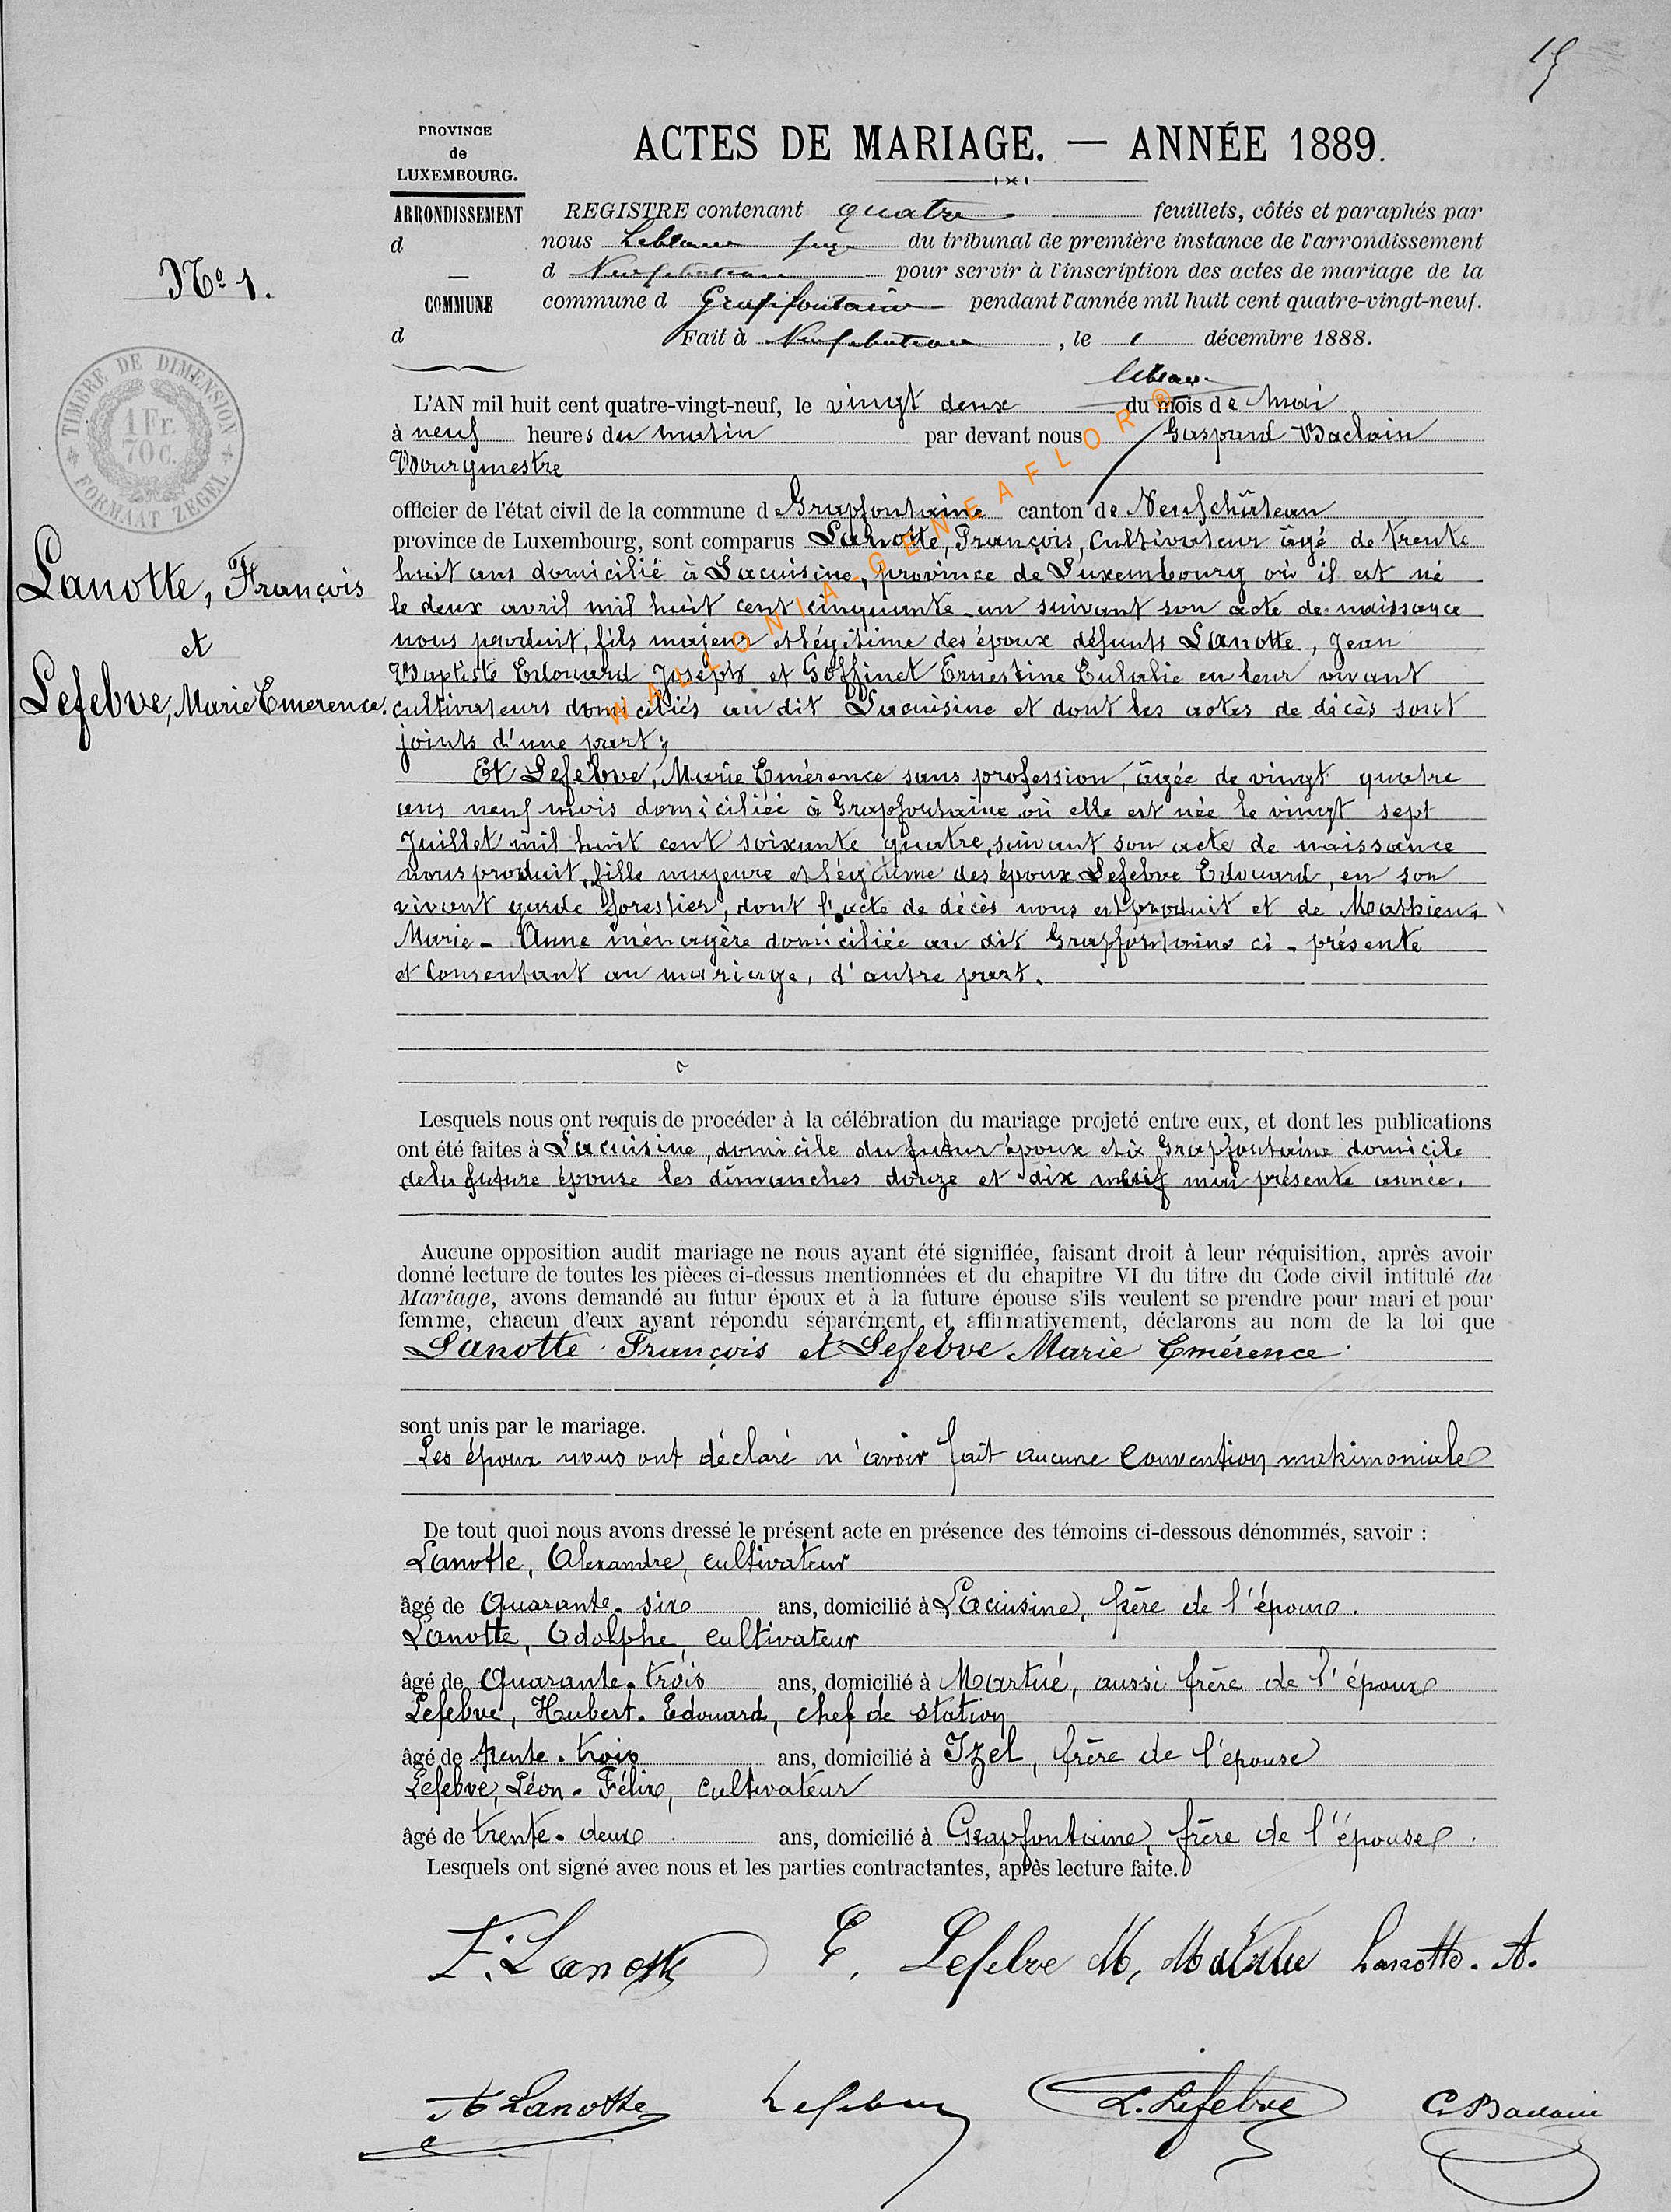 15
PROVINCE
de
LUXEMBOURG.
ARRONDISSEMENT
d
—
COMMUNE
d
ACTES DE MARIAGE. — ANNÉE 1889.
REGISTRE contenant quatre feuillets, côtés et paraphés par
nous Leblanc juge du tribunal de première instance de l'arrondissement
d Neufchateau pour servir à l'inscription des actes de mariage de la
commune d Grapfontaine pendant l'année mil huit cent quatre-vingt-neuf.
Fait à Neufchateau, le 1 décembre 1888.
No 1.
TIMBRE DE DIMENSION
1 Fr.
70 c.
FORMAAT ZEGEL
Lanotte, François
et
Lefebve, Marie Emerence.
L'AN mil huit cent quatre-vingt-neuf, le vingt deux du mois de Mai
à neuf heures du matin par devant nous Gaspard Baclain
Bourgmestre
officier de l'état civil de la commune de Grapfontaine canton de Neufchâteau
province de Luxembourg, sont comparus Lanotte, François, Cultivateur âgé de trente
huit ans domicilié à Lacuisine, province de Luxembourg où il est né
le deux avril mil huit cent cinquante-un suivant son acte de naissance
nous produit, fils majeur et légitime des époux défunts Lanotte, Jean
Baptiste Edouard Joseph et Goffinet Ernestine Eulalie en leur vivant
cultivateurs domiciliés au dit Lacuisine et dont les actes de décès sont
joints d'une part;
Et Lefebve, Marie Emérence sans profession, âgée de vingt quatre
ans neuf mois domiciliée à Grapfontaine où elle est née le vingt sept
Juillet mil huit cent soixante quatre, suivant son acte de naissance
nous produit, fille majeure et légitime des époux Lefebve Edouard, en son
vivant garde forestier, dont l'acte de décès nous est produit et de Mathieu,
Marie-Anne ménagère domiciliée au dit Grapfontaine ci-présente
et Consentant au mariage, d'autre part.
Lesquels nous ont requis de procéder à la célébration du mariage projeté entre eux, et dont les publications
ont été faites à Lacuisine, domicile du futur époux et à Grapfontaine domicile
de la future épouse les dimanches douze et dix neuf mai présente année.
Aucune opposition audit mariage ne nous ayant été signifiée, faisant droit à leur réquisition, après avoir
donné lecture de toutes les pièces ci-dessus mentionnées et du chapitre VI du titre du Code civil intitulé du
Mariage, avons demandé au futur époux et à la future épouse s'ils veulent se prendre pour mari et pour
femme, chacun d'eux ayant répondu séparément et affirmativement, déclarons au nom de la loi que
Lanotte François et Lefebve Marie Emérence
sont unis par le mariage.
Les époux nous ont déclaré n'avoir fait aucune convention matrimoniale
De tout quoi nous avons dressé le présent acte en présence des témoins ci-dessous dénommés, savoir :
Lanotte, Alexandre, cultivateur
âgé de Quarante-six ans, domicilié à Lacuisine, frère de l'époux.
Lanotte, Adolphe, cultivateur
âgé de Quarante-trois ans, domicilié à Martué, aussi frère de l'époux
Lefebve, Hubert-Edouard, chef de station
âgé de trente-trois ans, domicilié à Izel, frère de l'épouse
Lefebve, Léon-Félix, cultivateur
âgé de trente-deux ans, domicilié à Grapfontaine, frère de l'épouse.
Lesquels ont signé avec nous et les parties contractantes, après lecture faite.
F. Lanotte E. Lefebve M. Mathieu Lanotte. A.
A Lanotte Lefebve L. Lefebve G. Baclain
WALLONIA-GENEAFLOR®